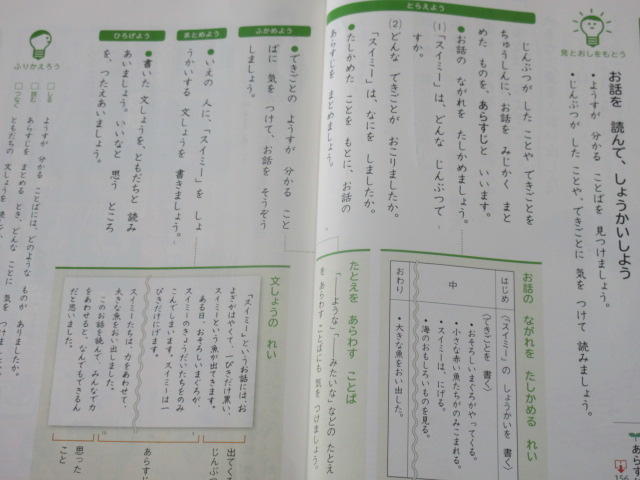 見とおしをもとう
お話を 読んで、しょうかいしよう
・ようすが 分かる ことばを 見つけましょう。
・じんぶつが した ことや、できごとに 気を つけて 読みましょう。
あらす
156
とらえよう
じんぶつが した ことや できごとを
ちゅうしんに、お話を みじかく まと
めた ものを、あらすじと いいます。
●お話の ながれを たしかめましょう。
(1)「スイミー」は、どんな じんぶつで
すか。
(2)どんな できごとが おこりましたか。
「スイミー」は、なにを しましたか。
●たしかめた ことを もとに、お話の
あらすじを まとめましょう。
お話の ながれを たしかめる れい
はじめ
(「スイミー」の しょうかいを 書く)
中
(できごとを 書く)
・おそろしいまぐろがやってくる。
・小さな赤い魚たちがのみこまれる。
・スイミーは、にげる。
・海のおもしろいものを見る。
おわり
・大きな魚をおい出した。
たとえを あらわす ことば
「―ような」「―みたいな」などの たとえ
を あらわす ことばにも 気を つけましょう。
ふかめよう
●できごとの ようすが 分かる こと
ばに 気を つけて、お話を そうぞう
しましょう。
まとめよう
●いえの 人に、「スイミー」を しょ
うかいする 文しょうを 書きましょう。
ひろげよう
●書いた 文しょうを、ともだちと 読み
あいましょう。いいなと 思う ところ
を、つたえあいましょう。
文しょうの れい
「スイミー」というお話には、お
よぎがはやくて、一ぴきだけ黒い、
スイミーという魚が出てきます。
ある日、おそろしいまぐろが、
スイミーのきょうだいたちをのみ
こんでしまいます。スイミーは一
ぴきだけにげます。
スイミーたちは、力をあわせて、
大きな魚をおい出しました。
このお話を読んで、みんなで力
をあわせると、なんでもできるん
だと思いました。
出てくる
じんぶつ
あらすじ
思った
こと
ふりかえろう
しる
ようすが 分かる ことばには、どのような ものが ありましたか。
読む
あらすじを まとめる とき、どんな ことに 気を つけました
つなぐ
ともだちの 文しょうを 読んで、